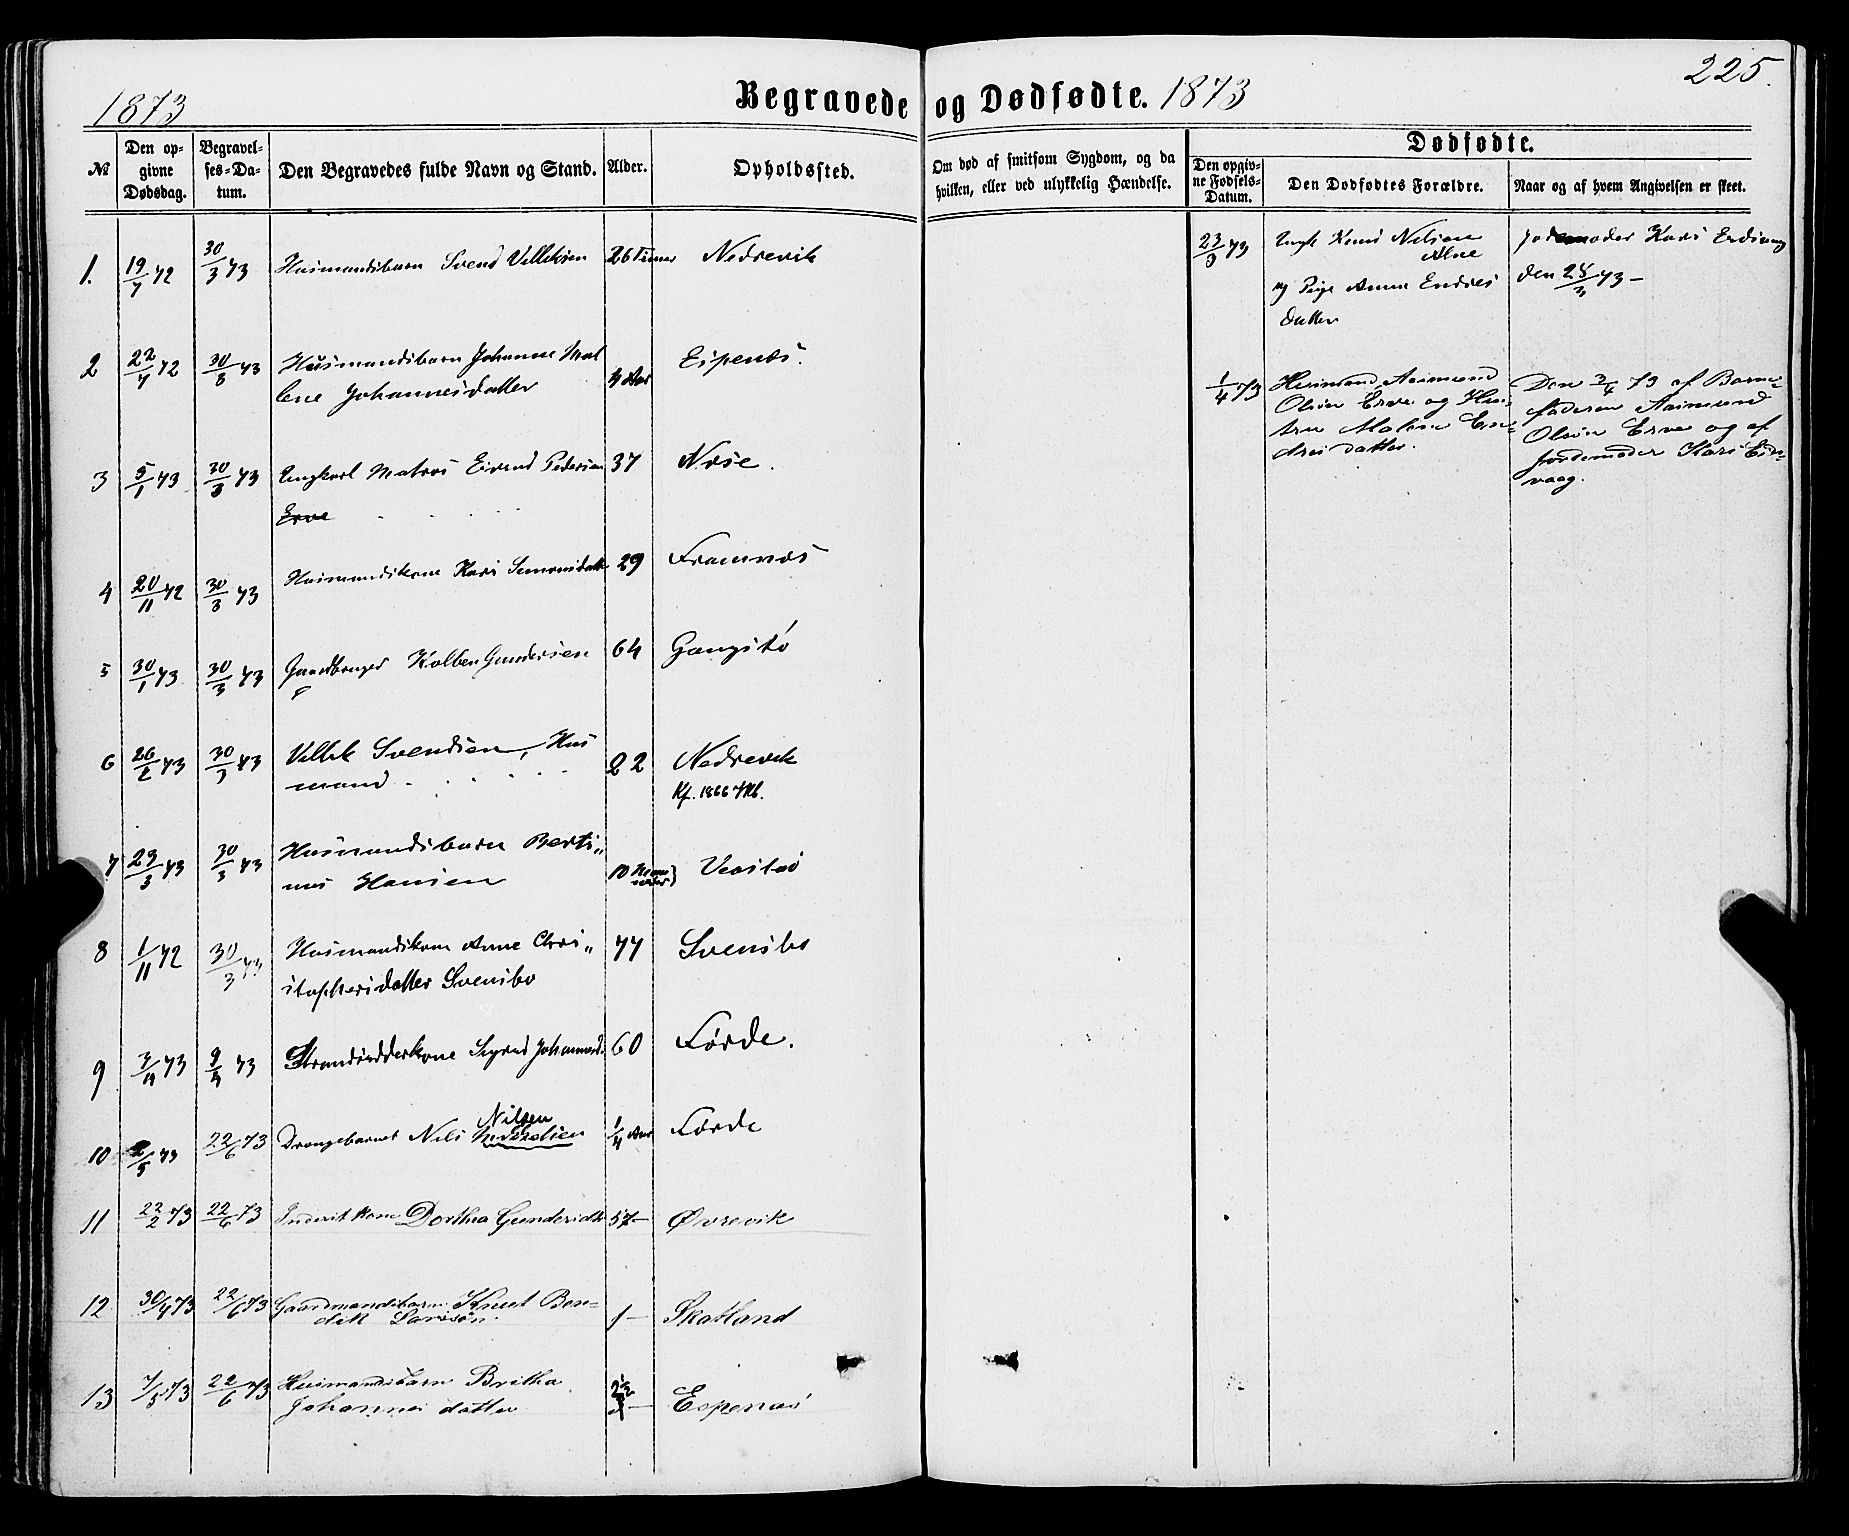 1873
Begravede og Dødfødte. 1873
225.
№
Den opgivne Dødsdag.
Begravelses-Datum.
Den Begravedes fulde Navn og Stand.
Alder.
Opholdssted.
Om død af smitsom Sygdom, og da hvilken, eller ved ulykkelig Hændelse.
Dødfødte.
Den opgivne Fødsels-Datum.
Den Dødfødtes Forældre.
Naar og af hvem Angivelsen er skeet.
1. 19/7 72 30/3 73 Husmandsbarn Svend Villiksen 26 Timer Nedrevik
2 22/7 72 30/3 73 Husmandsbarn Johanne Mal
lene Johannesdatter 4 Aar Espenæs.
3 5/1 73 30/3 73 Ungkarl Matros Eivend Pedersen 37 Nøse.
Erve
4 20/11 72 30/3 73 Husmandskone Kari Simonsdatt 29 Framnæs
5 30/1 73 30/3 73 Gaardbruger Kolben Gundersen 64 Gangstø
6 26/2 73 30/3 73 Villik Svendsen, Hus
mand 22 Nedrevik
Kf. 1866
7 29/3 73 30/3 73 Husmandsbarn Berti„
nus Hansen 10 Vestbø
8 1/11 72 30/3 73 Husmandskone Anne Chri„
stophersdatter Svensbo 77 Svensbo
9 3/4 73 9/4 73 Strandsidderkone Sigrid Johannesd. 60 Førde.
Nilsen
10 2/5 73 22/6 73 Drengebarnet Nils 1/4 Aar Førde
11 22/2 73 22/6 73 Inderst kone Dorthea Gundersdtr 57— Øvrevik
12 30/4 73 22/6 73 Gaardmandsbarn Knut Ben=
dik Larssøn. 1— Skatland
13 7/5 73 22/6 73 Husmandsbarn Britha
Johannesdatter 2½ — Espenæs
23/3 73 Ungk Knud Nilsen
Alne
og Pige Anna Endres
datter
Jordmoder Kari Eidsvaag
den 25/3 73 —
1/4 73 Husmand Aamund
Olsøn Erve og Hus=
tru Malene En=
dresdatter.
Den 3/4 73 af Barne=
faderen Aamund
Olsøn Erve og af
Jordemoder Kari Eids=
vaag.